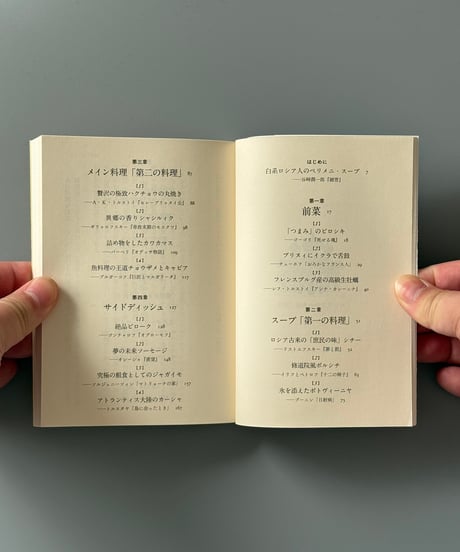 はじめに
白系ロシア人のペリメニ・スープ 7
——谷崎潤一郎『細雪』
第一章
前菜 17
【1】
「つまみ」のピロシキ
——ゴーゴリ『死せる魂』 18
【2】
ブリヌィにイクラで舌鼓
——チェーホフ「おろかなフランス人」 29
【3】
フレンスブルグ産の高級生牡蠣
——レフ・トルストイ『アンナ・カレーニナ』 40
第二章
スープ「第一の料理」 51
【1】
ロシア古来の「庶民の味」シチー
——ドストエフスキー『罪と罰』 52
【2】
修道院風ボルシチ
——イリフとペトロフ『十二の椅子』 63
【3】
氷を添えたボトヴィーニヤ
——ブーニン「日射病」 75
第三章
メイン料理「第二の料理」 87
【1】
贅沢の極致ハクチョウの丸焼き
——A・K・トルストイ『セレーブリャヌイ公』 88
【2】
異郷の香りシャシルィク
——ギリャロフスキー『帝政末期のモスクワ』 98
【3】
詰め物をしたカワカマス
——バーベリ『オデッサ物語』 109
【4】
魚料理の王道チョウザメとキャビア
——ブルガーコフ『巨匠とマルガリータ』 117
第四章
サイドディッシュ 127
【1】
絶品ピローク 128
——ゴンチャロフ『オブローモフ』
【2】
夢の未来ソーセージ
——オレーシャ『羨望』 148
【3】
究極の粗食としてのジャガイモ
——ソルジェニーツィン「マトリョーナの家」 157
【4】
アトランティス大陸のカーシャ
——トルスタヤ「鳥に会ったとき」 167